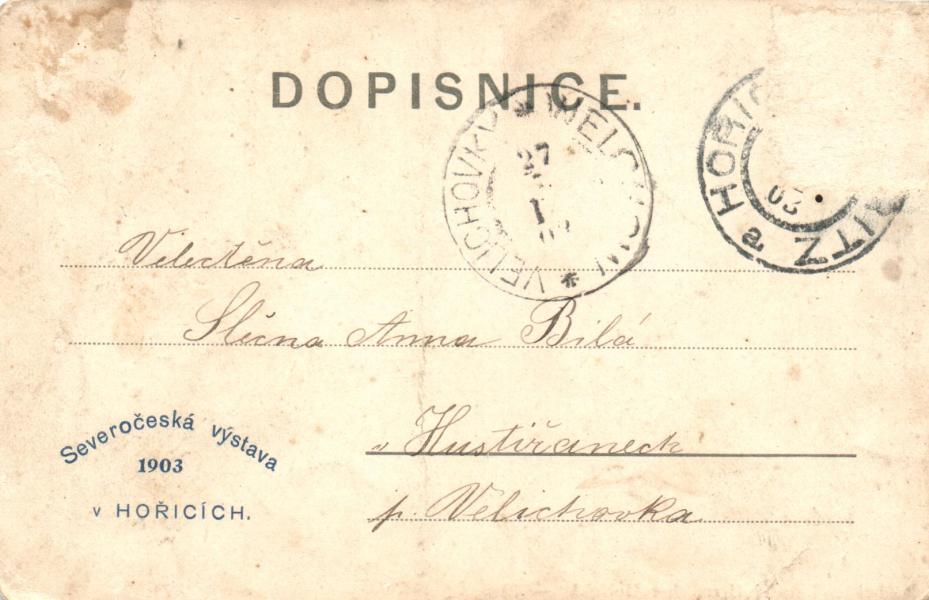 DOPISNICE.
VELICHOVKY * WELCHOW *
27
1
03
HOŘIC
ITZ a.
03
Velectěna
Slečna Anna Bilá
v Hustiřanech
p. Velichovka
Severočeská výstava
1903
v HOŘICÍCH.